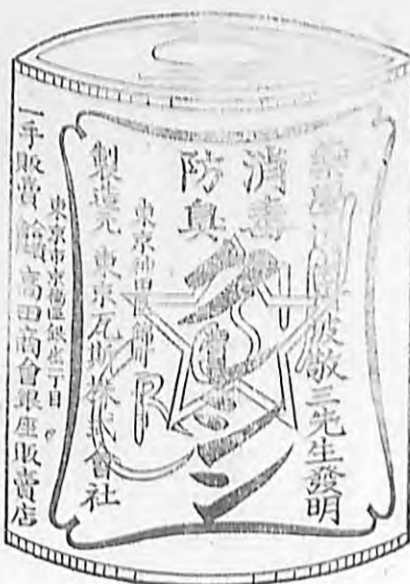 藥學 波敬三先生發明
消毒
防臭
東京神田區錦町
製造元 東京瓦斯株式會社
東京市京橋區銀座二丁目
一手販賣 高田商會銀座販賣店